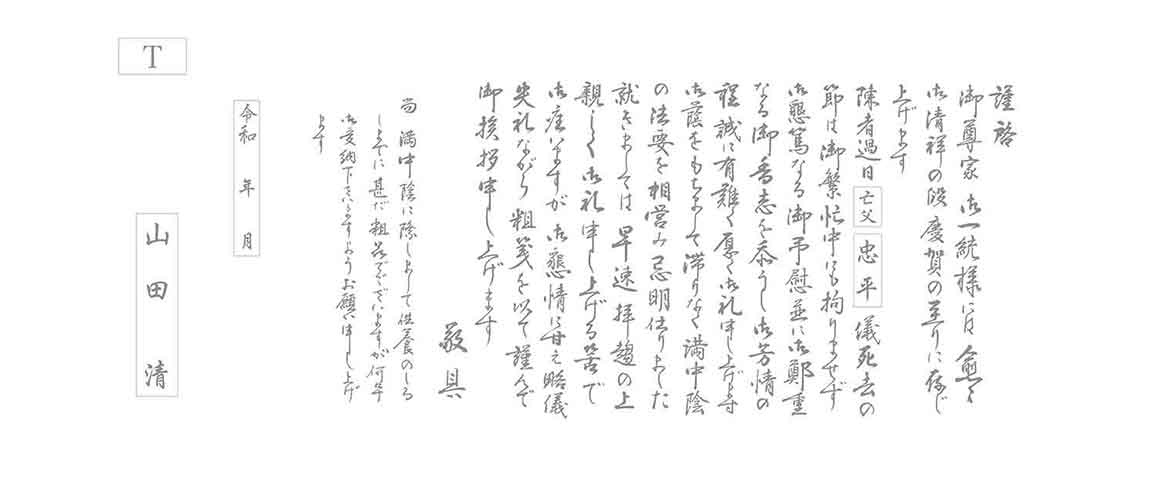 謹啓
御尊家 御一統様には 愈々
御清祥の段 慶賀の至りに存じ
上げます
陳者過日 亡父 忠平 儀死去の
節は御繁忙中にも拘りませず
御懇篤なる御弔慰並に御鄭重
なる御香志を忝うし御芳情の
程誠に有難く厚く御礼申し上げます
御蔭をもちまして滞りなく満中陰
の法要を相営み忌明仕りました
就きましては早速拝趨の上
親しく御礼申し上げる筈で
御座いますが 御懇情に甘え略儀
失礼ながら粗箋を以て謹んで
御挨拶申し上げます
敬具
尚 満中陰に際しまして供養のしる
しまでに甚だ粗品でございますが何卒
御受納下さいますようお願い申し上げ
ます
令和 年 月
山田 清
T